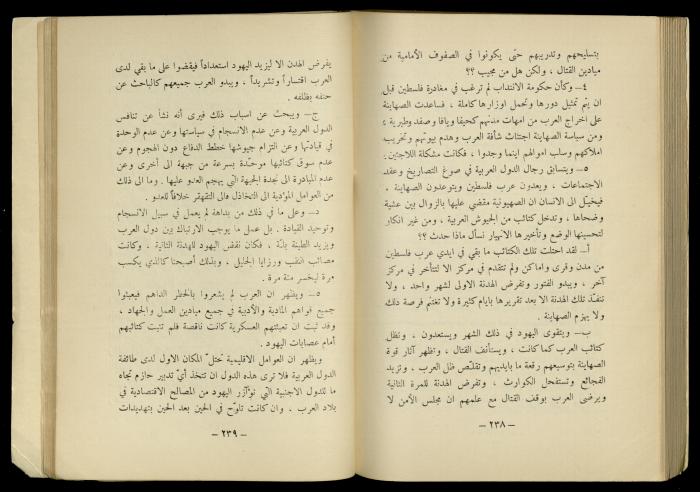 بتسليحهم وتدريبهم حتى يكونوا في الصفوف الأمامية من
ميادين القتال ، ولكن هل من مجيب ؟؟
٤ – وكأن حكومة الانتداب لم ترغب في مغادرة فلسطين قبل
ان يتم تمثيل دورها وتحمل اوزارها كاملة ، فساعدت الصهاينة
على اخراج العرب من امهات مدنهم كحيفا ويافا وصفد وطبرية ٤
ومن سياسة الصهاينة اجتثاث شأفة العرب وهدم بيوتهم وتخريب
املاكهم وسلب اموالهم اينما وجدوا ، فكانت مشكلة اللاجئين .
٥ – ويتسابق رجال الدول العربية في صوغ التصاريح وعقد
الاجتماعات ، ويعدون عرب فلسطين ويتوعدون الصهاينة ،
فيخيّل الى الانسان ان الصهيونية مقضي عليها بالزوال بين عشية
وضحاها ، وتدخل كتائب من الجيوش العربية ، ومن غير انكار
لتحسينها الوضع وتأخيرها الانهيار نسأل ماذا حدث ؟؟
أ – لقد احتلت تلك الكتائب ما بقي في ايدي عرب فلسطين
من مدن وقرى واماكن ولم تتقدم في مركز الا لتتأخر في مركز
آخر ، ويبدو الفتور وتفرض الهدنة الاولى لشهر واحد ، ولا
تنفذ تلك الهدنة الا بعد تقريرها بايام كثيرة ولا تغتنم فرصة ذلك
ولا يهزم الصهاينة .
ب – ويتقوى اليهود في ذلك الشهر ويستعدون ، وتظل
كتائب العرب كما كانت ، ويستأنف القتال ، وتظهر آثار قوة
الصهاينة بتوسيعهم رقعة ما بايديهم وتقلّص ظل العرب ، وتزيد
الفجائع وتستفحل الكوارث ، وتفرض الهدنة للمرة الثانية
ويرضى العرب بوقف القتال مع علمهم ان مجلس الأمن لا
– ٢٣٨ –
يفرض الهدن الا ليزيد اليهود استعداداً فيقضوا على ما بقي لدى
العرب اقتساراً وتشريداً ، ويبدو العرب جميعهم كالباحث عن
حتفه بظلفه .
ج – ويبحث عن اسباب ذلك فيرى أنه نشأ عن تنافس
الدول العربية وعن عدم الانسجام في سياستها وعن عدم الوحدة
في قيادتها وعن التزام جيوشها خطط الدفاع دون الهجوم وعن
عدم سوق كتائبها موحّدة بسرعة من جبهة الى أخرى وعن
عدم المبادرة الى نجدة الجبهة التي يهجم العدو عليها . وما الى ذلك
من العوامل المؤدية الى التخاذل فالى التقهقر خلافاً للعدو .
د – وعلى ما في ذلك من بداهة لم يعمل في سبيل الانسجام
وتوحيد القيادة . بل عمل ما يوجب الارتباك بين دول العرب
ويزيد الطينة بلّة ، فكان نقض اليهود للهدنة الثانية ، وكانت
مصائب النقب ورزايا الجليل ، وبذلك أصبحنا كالذي يكسب
مرة ليخسر مئة مرة .
٥ – ويظهر ان العرب لم يشعروا بالخطر الداهم فيعبئوا
جميع قواهم المادية والأدبية في جميع ميادين العمل والجهاد ،
وقد ثبت ان تعبئتهم العسكرية كانت ناقصة فلم تثبت كتائبهم
أمام عصابات اليهود .
ويظهر ان العوامل الاقليمية تحتلّ المكان الاول لدى طائفة
الدول العربية فلا ترى هذه الدول ان تتخذ أيّ تدبير حازم تجاه
ما للدول الاجنبية التي تؤازر اليهود من المصالح الاقتصادية في
بلاد العرب ، وان كانت تلوّح في الحين بعد الحين بتهديدات
– ٢٣٩ –